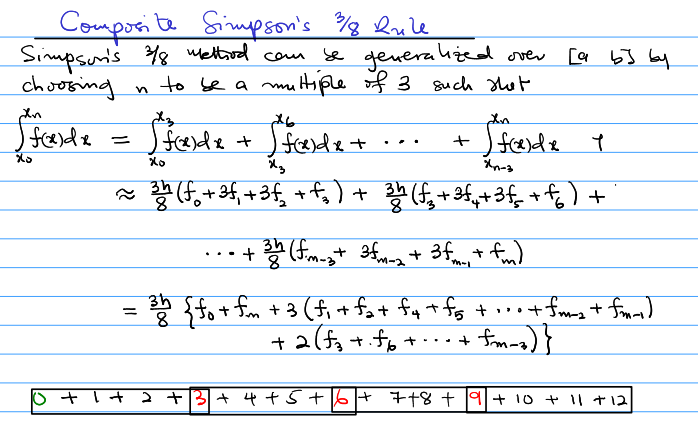 Composite Simpson's 3/8 Rule
Simpson's 3/8 method can be generalized over [a b] by
choosing n to be a multiple of 3 such that
∫_{x₀}^{xₙ} f(x)dx = ∫_{x₀}^{x₃} f(x)dx + ∫_{x₃}^{x₆} f(x)dx + ... + ∫_{xₙ₋₃}^{xₙ} f(x)dx
≈ 3h/8 (f₀+3f₁+3f₂+f₃) + 3h/8 (f₃+3f₄+3f₅+f₆) +
... + 3h/8 (f_{m-3} + 3f_{m-2} + 3f_{m-1} + f_m)
= 3h/8 {f₀+f_m + 3(f₁+f₂+f₄+f₅ + ... + f_{m-2} + f_{m-1})
+ 2(f₃+f₆+...+f_{m-3})}
0 + 1 + 2 + 3 + 4 + 5 + 6 + 7+8 + 9 + 10 + 11 + 12